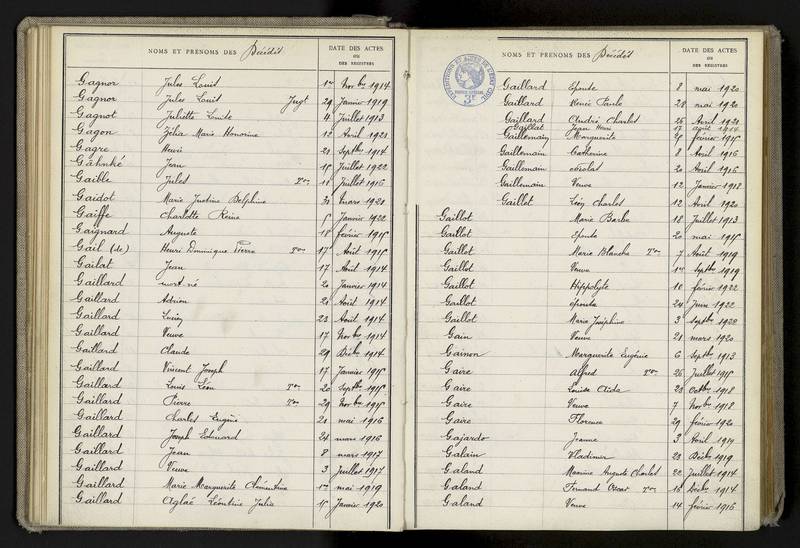 NOMS ET PRÉNOMS DES Décédés
DATE DES ACTES
OU
DES REGISTRES
Gagnor Jules Louis 1er Novbre 1914
Gagnor Jules Louis Jugt 29 Janvier 1919
Gagnot Juliette Louise 4 Juillet 1913
Gagon Zélia Marie Honorine 12 Avril 1921
Gagre Henri 20 Septbre 1914
Gähnké Jean 15 Juillet 1922
Gaible Jules Ton 11 Juillet 1916
Gaidot Marie Justine Delphine 31 mars 1921
Gaiffe Charlotte Reine 5 Janvier 1922
Gaignard Auguste 18 février 1915
Gail (de) Henri Dominique Pierre Ton 17 Août 1915
Gailat Jean 17 Août 1914
Gaillard mort né 20 Janvier 1914
Gaillard Adrien 21 Août 1914
Gaillard Lucien 22 Août 1914
Gaillard Veuve 17 Novbre 1914
Gaillard Claude 29 Décbre 1914
Gaillard Vincent Joseph 17 Janvier 1915
Gaillard Louis Léon Ton 20 Septbre 1915
Gaillard Pierre Ton 29 Novbre 1915
Gaillard Charles Eugène 21 mai 1916
Gaillard Joseph Edouard 24 mars 1916
Gaillard Jean 8 mars 1917
Gaillard Veuve 3 Juillet 1917
Gaillard Marie Marguerite Clémentine 1er mai 1919
Gaillard Aglaé Léontine Julie 15 Janvier 1920
NOMS ET PRÉNOMS DES Décédés
DATE DES ACTES
OU
DES REGISTRES
3F
Gaillard Epouse 8 mai 1920
Gaillard Renée Paule 28 mai 1920
Gaillard André Charles 26 Avril 1921
Gaillat Jean Henri 17 août 1914
Gaillemain Marguerite 21 février 1915
Gaillemain Catherine 8 Avril 1916
Gaillemain Nicolas 20 Avril 1916
Gaillemain Veuve 12 Janvier 1918
Gaillet Léon Charles 12 Avril 1920
Gaillot Marie Barbe 18 Juillet 1913
Gaillot Epouse 20 mai 1915
Gaillot Marie Blanche Ton 7 Août 1919
Gaillot Veuve 1er Septbre 1919
Gaillot Hippolyte 10 février 1922
Gaillot épouse 24 Juin 1922
Gaillot Marie Joséphine 3 Septbre 1920
Gain Veuve 21 mars 1920
Gainon Marguerite Eugénie 6 Septbre 1913
Gaire Alfred Ton 26 Juillet 1915
Gaire Louise Elide 23 Octbre 1918
Gaire Veuve 7 Novbre 1918
Gaire Florence 29 février 1920
Gajardo Jeanne 3 Avril 1919
Galain Vladimir 23 Décbre 1919
Galand Maxime Auguste Charles 22 Juillet 1914
Galand Fernand Oscar Ton 16 Décbre 1914
Galand Veuve 14 février 1916